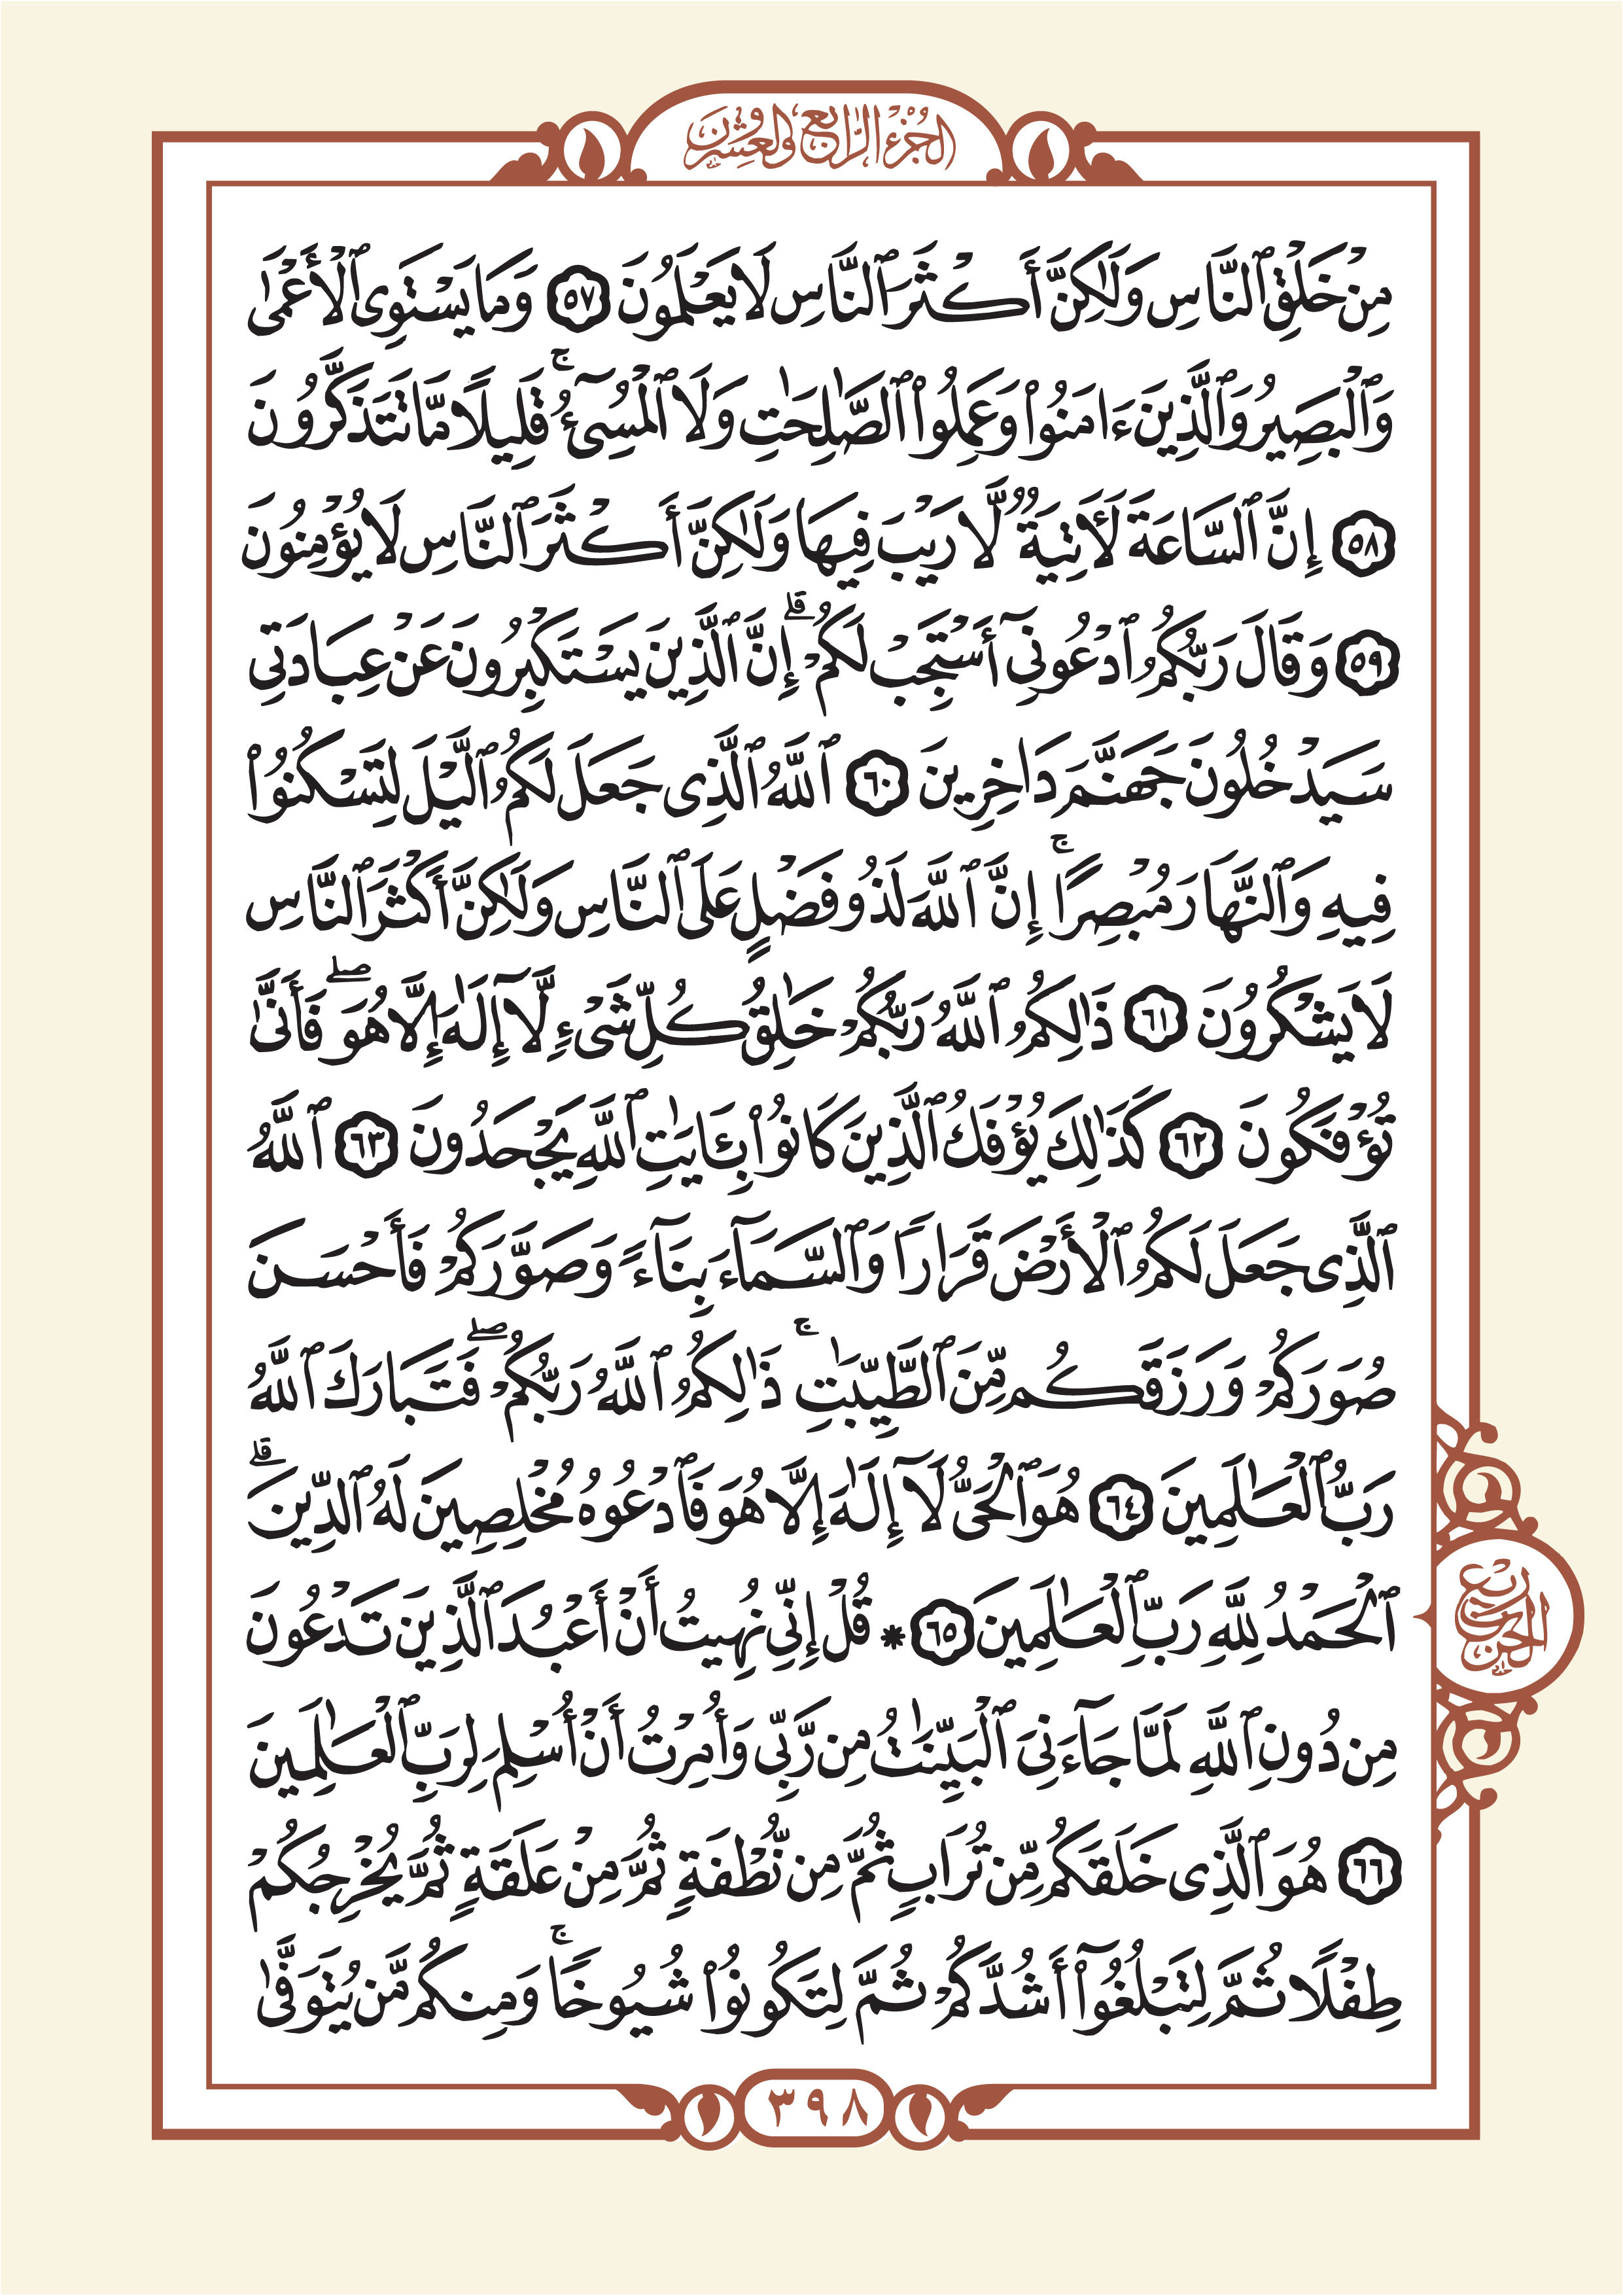 الجزء الرابع والعشرون
مِنْ خَلْقِ ٱلنَّاسِ وَلَٰكِنَّ أَكْثَرَ ٱلنَّاسِ لَا يَعْلَمُونَ ٥٧ وَمَا يَسْتَوِى ٱلْأَعْمَىٰ
وَٱلْبَصِيرُ وَٱلَّذِينَ ءَامَنُوا۟ وَعَمِلُوا۟ ٱلصَّٰلِحَٰتِ وَلَا ٱلْمُسِىٓءُ ۚ قَلِيلًا مَّا تَتَذَكَّرُونَ
٥٨ إِنَّ ٱلسَّاعَةَ لَأٓتِيَةٌ لَّا رَيْبَ فِيهَا وَلَٰكِنَّ أَكْثَرَ ٱلنَّاسِ لَا يُؤْمِنُونَ
٥٩ وَقَالَ رَبُّكُمُ ٱدْعُونِىٓ أَسْتَجِبْ لَكُمْ ۗ إِنَّ ٱلَّذِينَ يَسْتَكْبِرُونَ عَنْ عِبَادَتِى
سَيَدْخُلُونَ جَهَنَّمَ دَاخِرِينَ ٦٠ ٱللَّهُ ٱلَّذِى جَعَلَ لَكُمُ ٱلَّيْلَ لِتَسْكُنُوا۟
فِيهِ وَٱلنَّهَارَ مُبْصِرًا ۚ إِنَّ ٱللَّهَ لَذُو فَضْلٍ عَلَى ٱلنَّاسِ وَلَٰكِنَّ أَكْثَرَ ٱلنَّاسِ
لَا يَشْكُرُونَ ٦١ ذَٰلِكُمُ ٱللَّهُ رَبُّكُمْ خَٰلِقُ كُلِّ شَىْءٍ لَّآ إِلَٰهَ إِلَّا هُوَ ۖ فَأَنَّىٰ
تُؤْفَكُونَ ٦٢ كَذَٰلِكَ يُؤْفَكُ ٱلَّذِينَ كَانُوا۟ بِـَٔايَٰتِ ٱللَّهِ يَجْحَدُونَ ٦٣ ٱللَّهُ
ٱلَّذِى جَعَلَ لَكُمُ ٱلْأَرْضَ قَرَارًا وَٱلسَّمَآءَ بِنَآءً وَصَوَّرَكُمْ فَأَحْسَنَ
صُوَرَكُمْ وَرَزَقَكُم مِّنَ ٱلطَّيِّبَٰتِ ۚ ذَٰلِكُمُ ٱللَّهُ رَبُّكُمْ ۖ فَتَبَارَكَ ٱللَّهُ
رَبُّ ٱلْعَٰلَمِينَ ٦٤ هُوَ ٱلْحَىُّ لَآ إِلَٰهَ إِلَّا هُوَ فَٱدْعُوهُ مُخْلِصِينَ لَهُ ٱلدِّينَ ۗ
ٱلْحَمْدُ لِلَّهِ رَبِّ ٱلْعَٰلَمِينَ ٦٥ * قُلْ إِنِّى نُهِيتُ أَنْ أَعْبُدَ ٱلَّذِينَ تَدْعُونَ
مِن دُونِ ٱللَّهِ لَمَّا جَآءَنِىَ ٱلْبَيِّنَٰتُ مِن رَّبِّى وَأُمِرْتُ أَنْ أُسْلِمَ لِرَبِّ ٱلْعَٰلَمِينَ
٦٦ هُوَ ٱلَّذِى خَلَقَكُم مِّن تُرَابٍ ثُمَّ مِن نُّطْفَةٍ ثُمَّ مِنْ عَلَقَةٍ ثُمَّ يُخْرِجُكُمْ
طِفْلًا ثُمَّ لِتَبْلُغُوٓا۟ أَشُدَّكُمْ ثُمَّ لِتَكُونُوا۟ شُيُوخًا ۚ وَمِنكُم مَّن يُتَوَفَّىٰ
ربع الحزب
٣٩٨